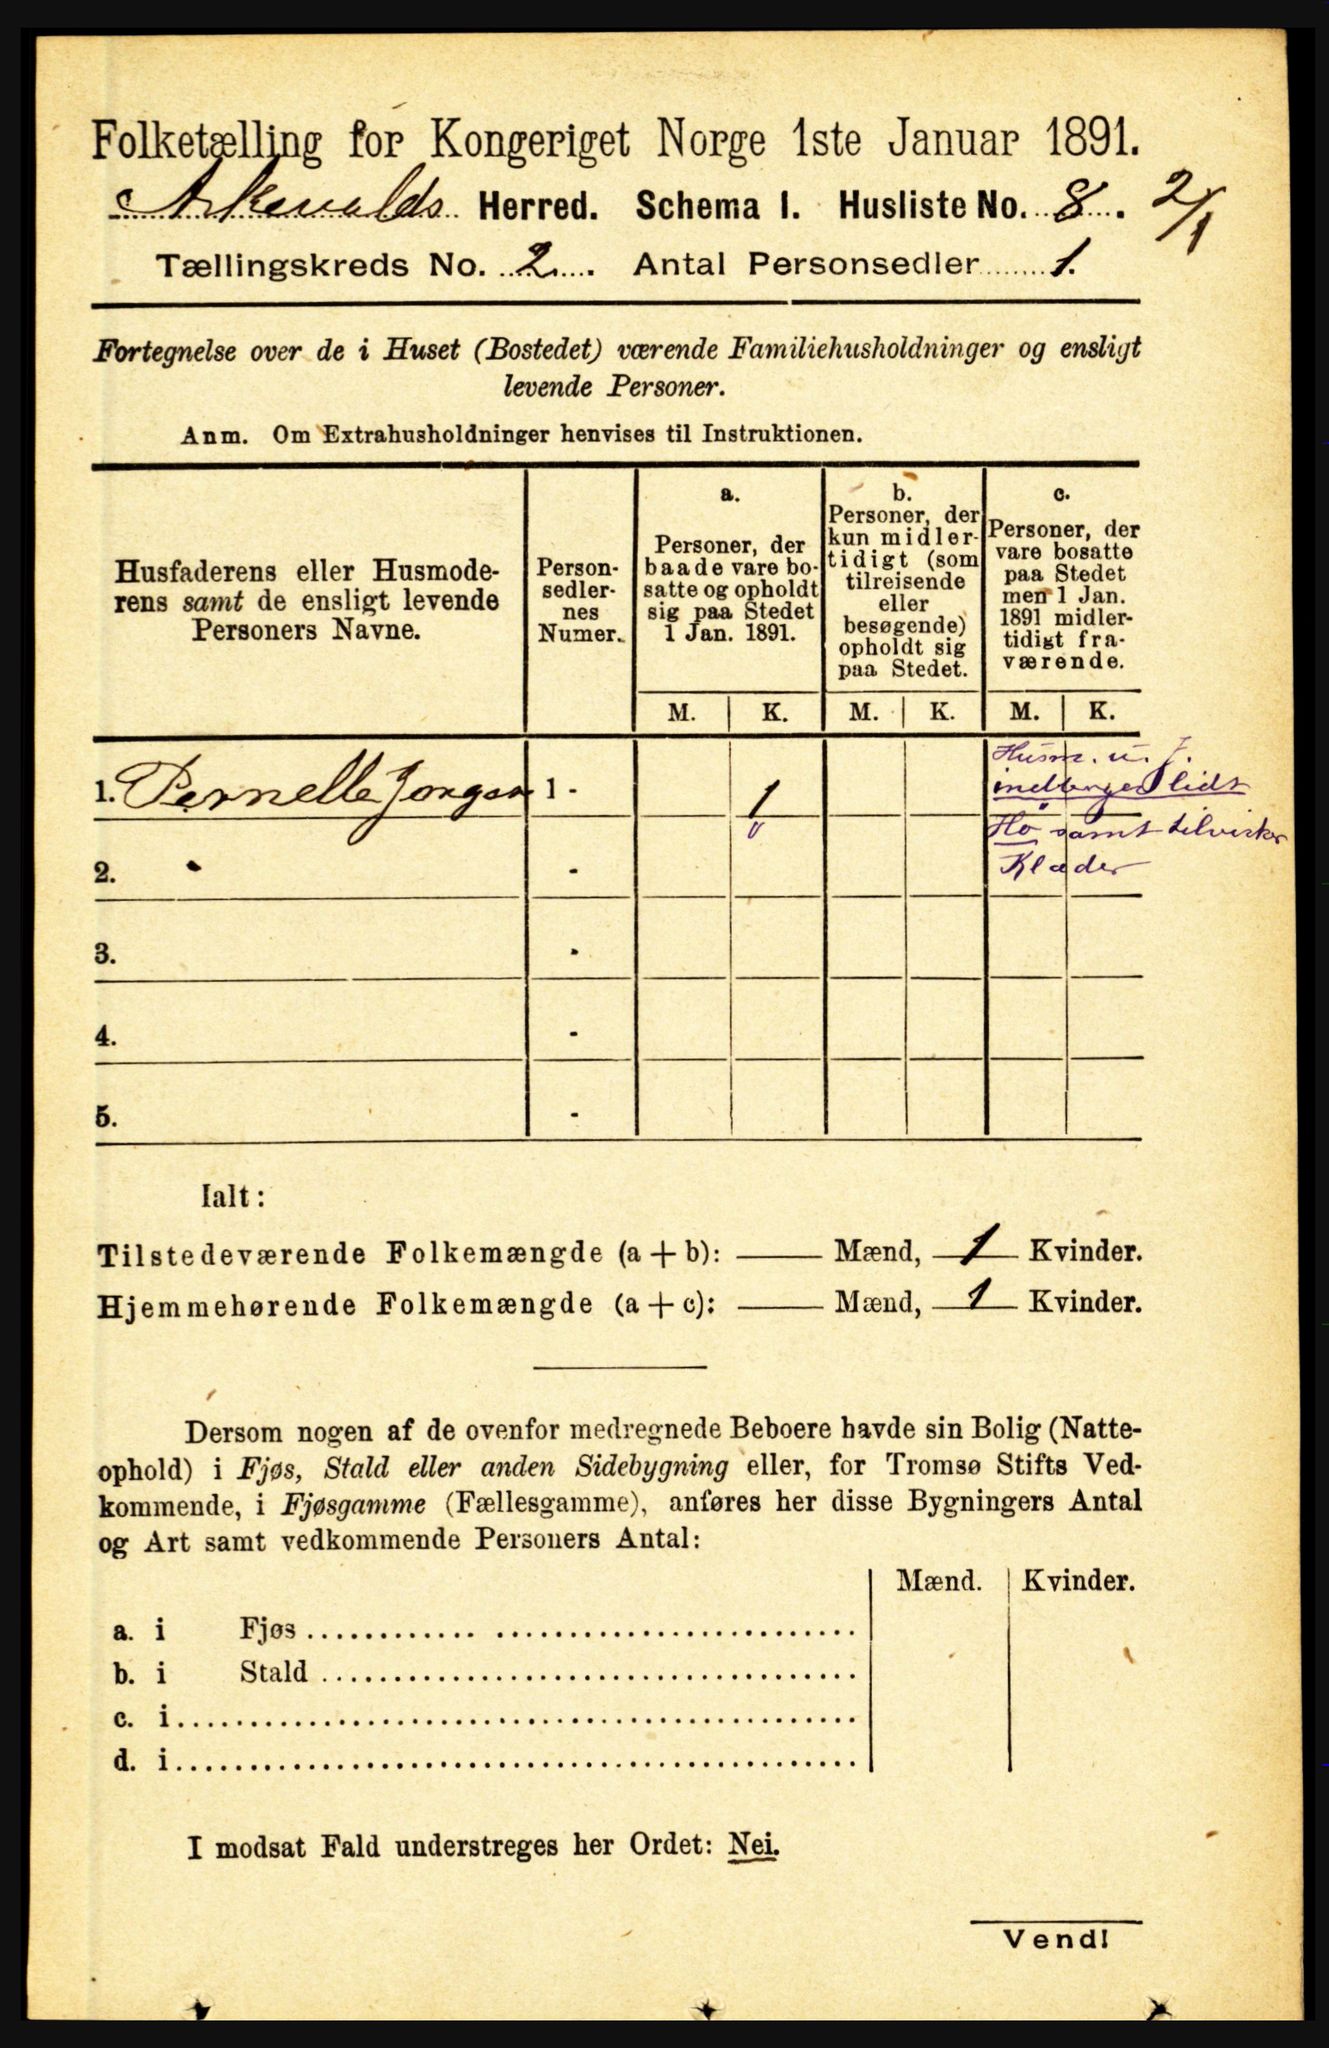 Folketælling for Kongeriget Norge 1ste Januar 1891.
Askevolds Herred. Schema I. Husliste No. 8. 2/1
Tællingskreds No. 2. Antal Personsedler 1.
Fortegnelse over de i Huset (Bostedet) værende Familiehusholdninger og ensligt
levende Personer.
Anm. Om Extrahusholdninger henvises til Instruktionen.
Husfaderens eller Husmode-
rens samt de ensligt levende
Personers Navne.
Person-
sedler-
nes
Numer.
a.
Personer, der
baade vare bo-
satte og opholdt
sig paa Stedet
1 Jan. 1891.
b.
Personer, der
kun midler-
tidigt (som
tilreisende
eller
besøgende)
opholdt sig
paa Stedet.
c.
Personer, der
vare bosatte
paa Stedet
men 1 Jan.
1891 midler-
tidigt fra-
værende.
M. K. M. K. M. K.
Husm. u. J.
1. Pernelle Jonger 1 - 1 lidt
0 Hø samt
2. - Klæder
3. -
4. -
5. -
Ialt:
Tilstedeværende Folkemængde (a + b): Mænd, 1 Kvinder.
Hjemmehørende Folkemængde (a + c): Mænd, 1 Kvinder.
Dersom nogen af de ovenfor medregnede Beboere havde sin Bolig (Natte-
ophold) i Fjøs, Stald eller anden Sidebygning eller, for Tromsø Stifts Ved-
kommende, i Fjøsgamme (Fællesgamme), anføres her disse Bygningers Antal
og Art samt vedkommende Personers Antal:
Mænd. Kvinder.
a. i Fjøs
b. i Stald
c. i
d. i
I modsat Fald understreges her Ordet: Nei.
Vend!